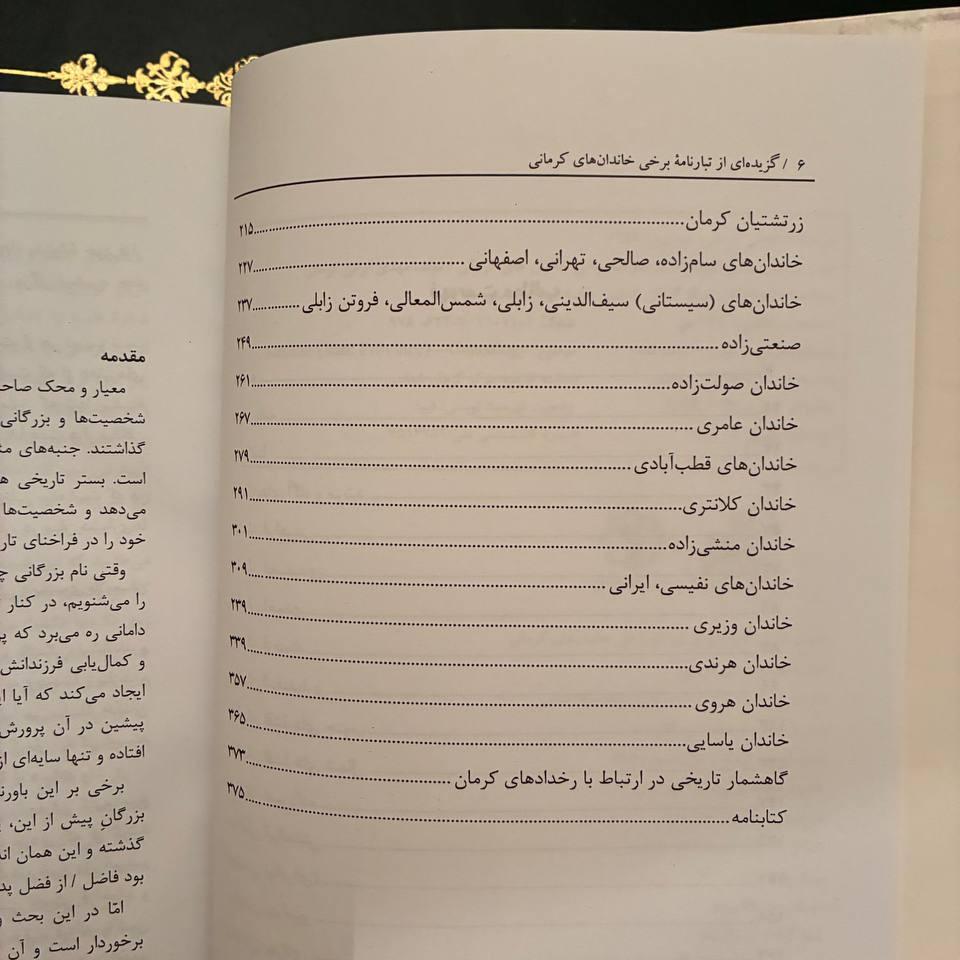 ۶ / گزیده‌ای از تبارنامهٔ برخی خاندان‌های کرمانی
زرتشتیان کرمان ........ ۲۱۵
خاندان‌های سام‌زاده، صالحی، تهرانی، اصفهانی ........ ۲۲۷
خاندان‌های (سیستانی) سیف‌الدینی، زابلی، شمس‌المعالی، فروتن زابلی ........ ۲۳۷
صنعتی‌زاده ........ ۲۴۹
خاندان صولت‌زاده ........ ۲۶۱
خاندان عامری ........ ۲۶۷
خاندان‌های قطب‌آبادی ........ ۲۷۹
خاندان کلانتری ........ ۲۹۱
خاندان منشی‌زاده ........ ۳۰۱
خاندان‌های نفیسی، ایرانی ........ ۳۰۹
خاندان وزیری ........ ۲۳۹
خاندان هرندی ........ ۳۳۹
خاندان هروی ........ ۳۵۷
خاندان یاسایی ........ ۳۶۵
گاهشمار تاریخی در ارتباط با رخدادهای کرمان ........ ۳۷۳
کتابنامه ........ ۳۷۵
مقدمه
معیار و محک
شخصیت‌ها و بزرگانی
گذاشتند. جنبه‌های
است. بستر تاریخی
می‌دهد و شخصیت‌ها
خود را در فراخنای
وقتی نام بزرگانی
را می‌شنویم، در کنار
دامانی ره می‌برد که
و کمال‌یابی فرزندانش
ایجاد می‌کند که آیا
پیشین در آن پرورش
افتاده و تنها سایه‌ای از
برخی بر این
بزرگانِ پیش از این،
گذشته و این همان
بود فاضل / از فضل
امّا در این بحث و
برخوردار است و آن